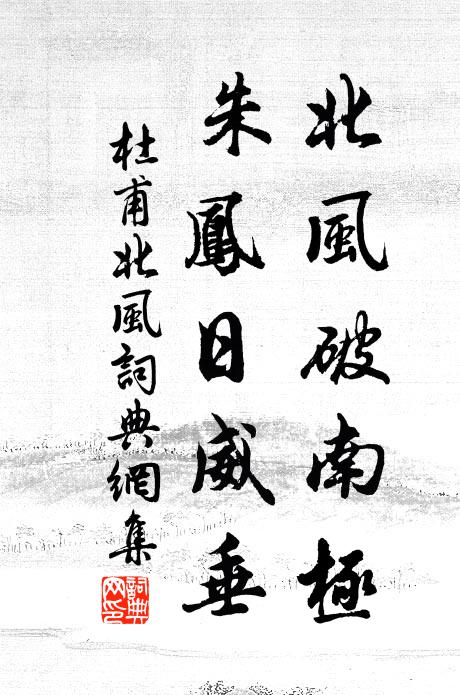 北風破南極
朱鳳日威垂
杜甫北風詞典網集
詞典